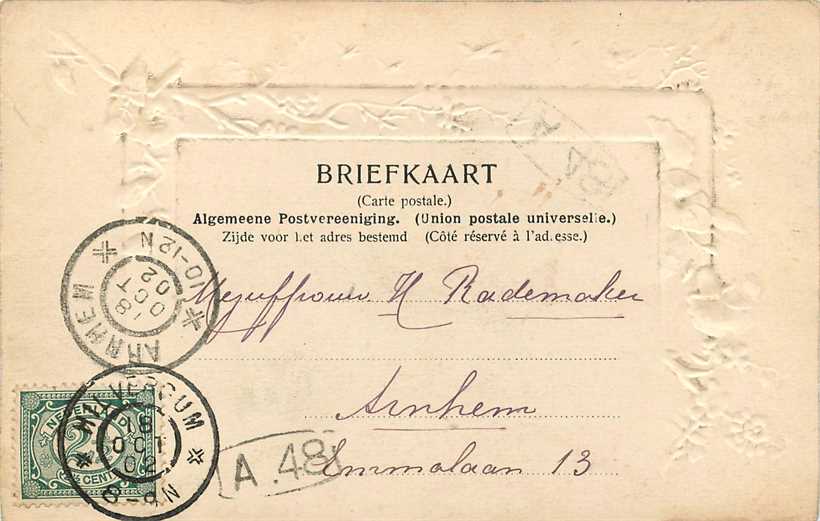 BRIEFKAART
(Carte postale.)
Algemeene Postvereeniging. (Union postale universelle.)
Zijde voor het adres bestemd (Côté réservé à l'adresse.)
Mejuffrouw H Rademaker
Arnhem
Emmalaan 13
ARNHEM
18 OCT 02
10-12N
18 OCT 02
NEDERLAND
2½ CENT
A.48